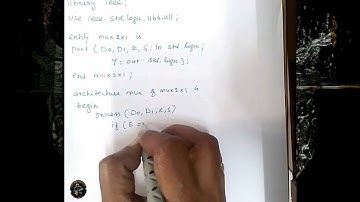 library ieee;
use ieee. std_logic_1164.all;
entity mux2x1 is
port ( D0, D1, E, S : in std_logic;
Y : out std_logic);
end mux2x1;
architecture mux of mux2x1 is
begin
process ( D0, D1, E, S)
if ( E =